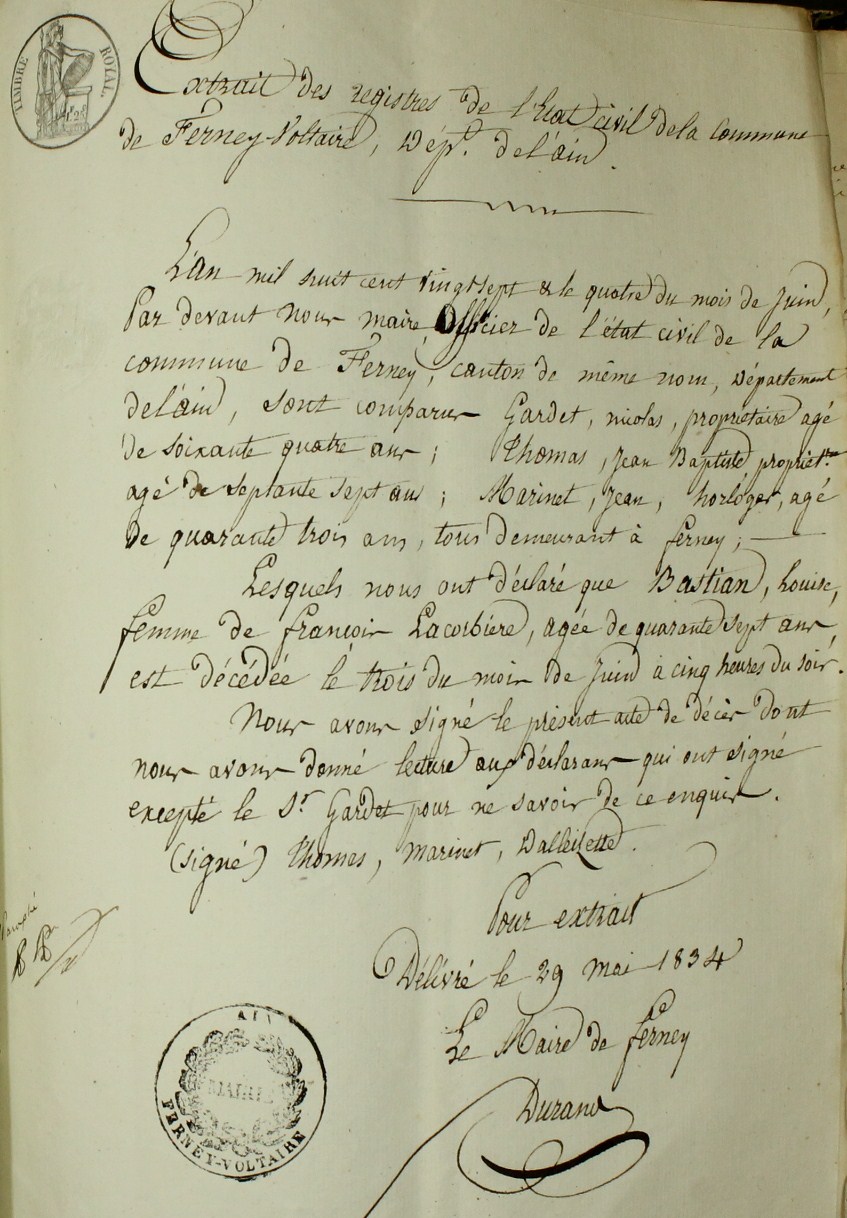 TIMBRE ROYAL
Extrait des registres de l'Etat civil de la Commune
de Ferney-Voltaire, Dép.t de l'ain.
L'an mil huit cent vingt sept & le quatre du mois de Juin,
Par devant Nous maire, Officier de l'état civil de la
commune de Ferney, canton de même nom, Département
de l'ain, sont comparus Gardet, nicolas, propriétaire agé
de soixante quatre ans; Thomas, Jean Baptiste propriét.re
agé de septante sept ans; Marinet, Jean, horloger, agé
de quarante trois ans, tous demeurant à ferney;
Lesquels nous ont déclaré que Bastian, Louise,
femme de françois Lacorbiere, agée de quarante sept ans,
est décédée le trois du mois de Juin à cinq heures du soir.
Nous avons signé le présent acte de décès dont
nous avons donné lecture aux déclarans qui ont signé
excepté le S.r Gardet pour ne savoir de ce enquis.
(signé) Thomas, Marinet,
Pour extrait
Délivré le 29 mai 1834
Le Maire de ferney
Durand
AIN
MAIRIE
FERNEY-VOLTAIRE